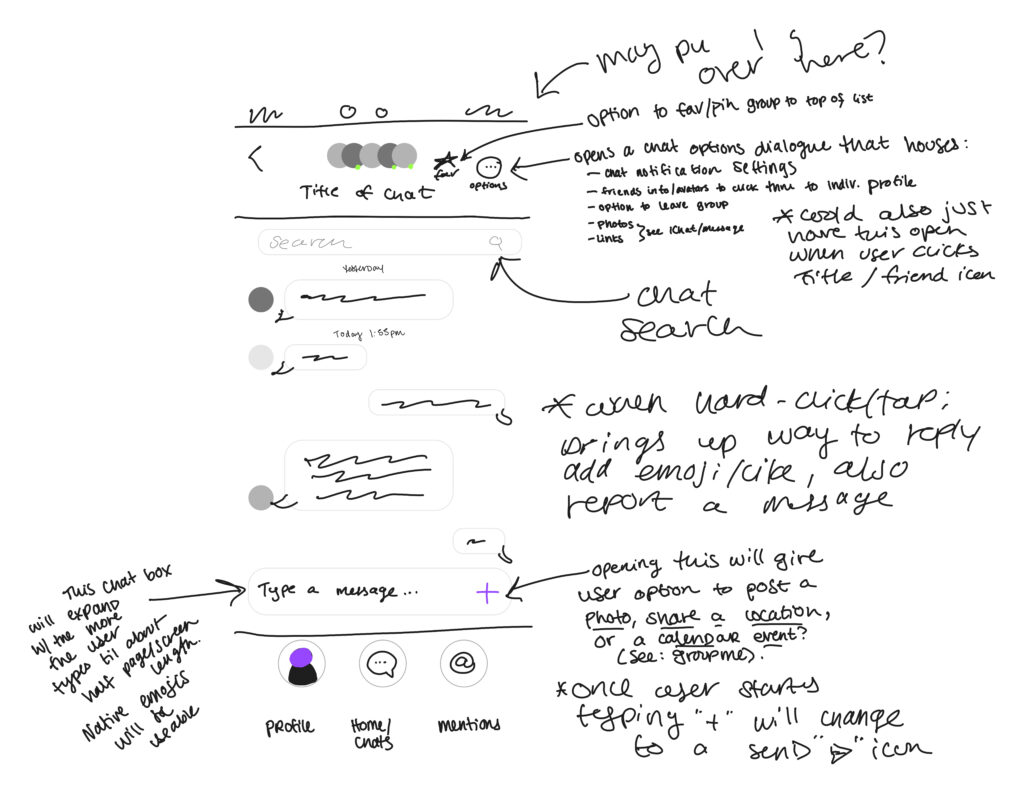 may pu
over here?
option to fav/pin group to top of list
fav
options
Title of Chat
opens a chat options dialogue that houses:
- chat notification settings
- friends info/avatars to click thru to indiv. profile
- option to leave group
- Photos
- Links
see iChat/message
* could also just
have this open
when user clicks
Title / friend icon
search
chat
search
Yesterday
Today 1:55pm
* when hard-click/tap;
brings up way to reply
add emoji/like, also
report a message
This chat box
will expand
w/ the more
the user
types til about
half page/screen
length.
Native emojis
will be
useable
Type a message...
+
opening this will give
user option to post a
photo, share a location,
or a calendar event?
(see: groupme).
* once user starts
typing "+" will change
to a send "" icon
@
Profile
Home/
Chats
mentions